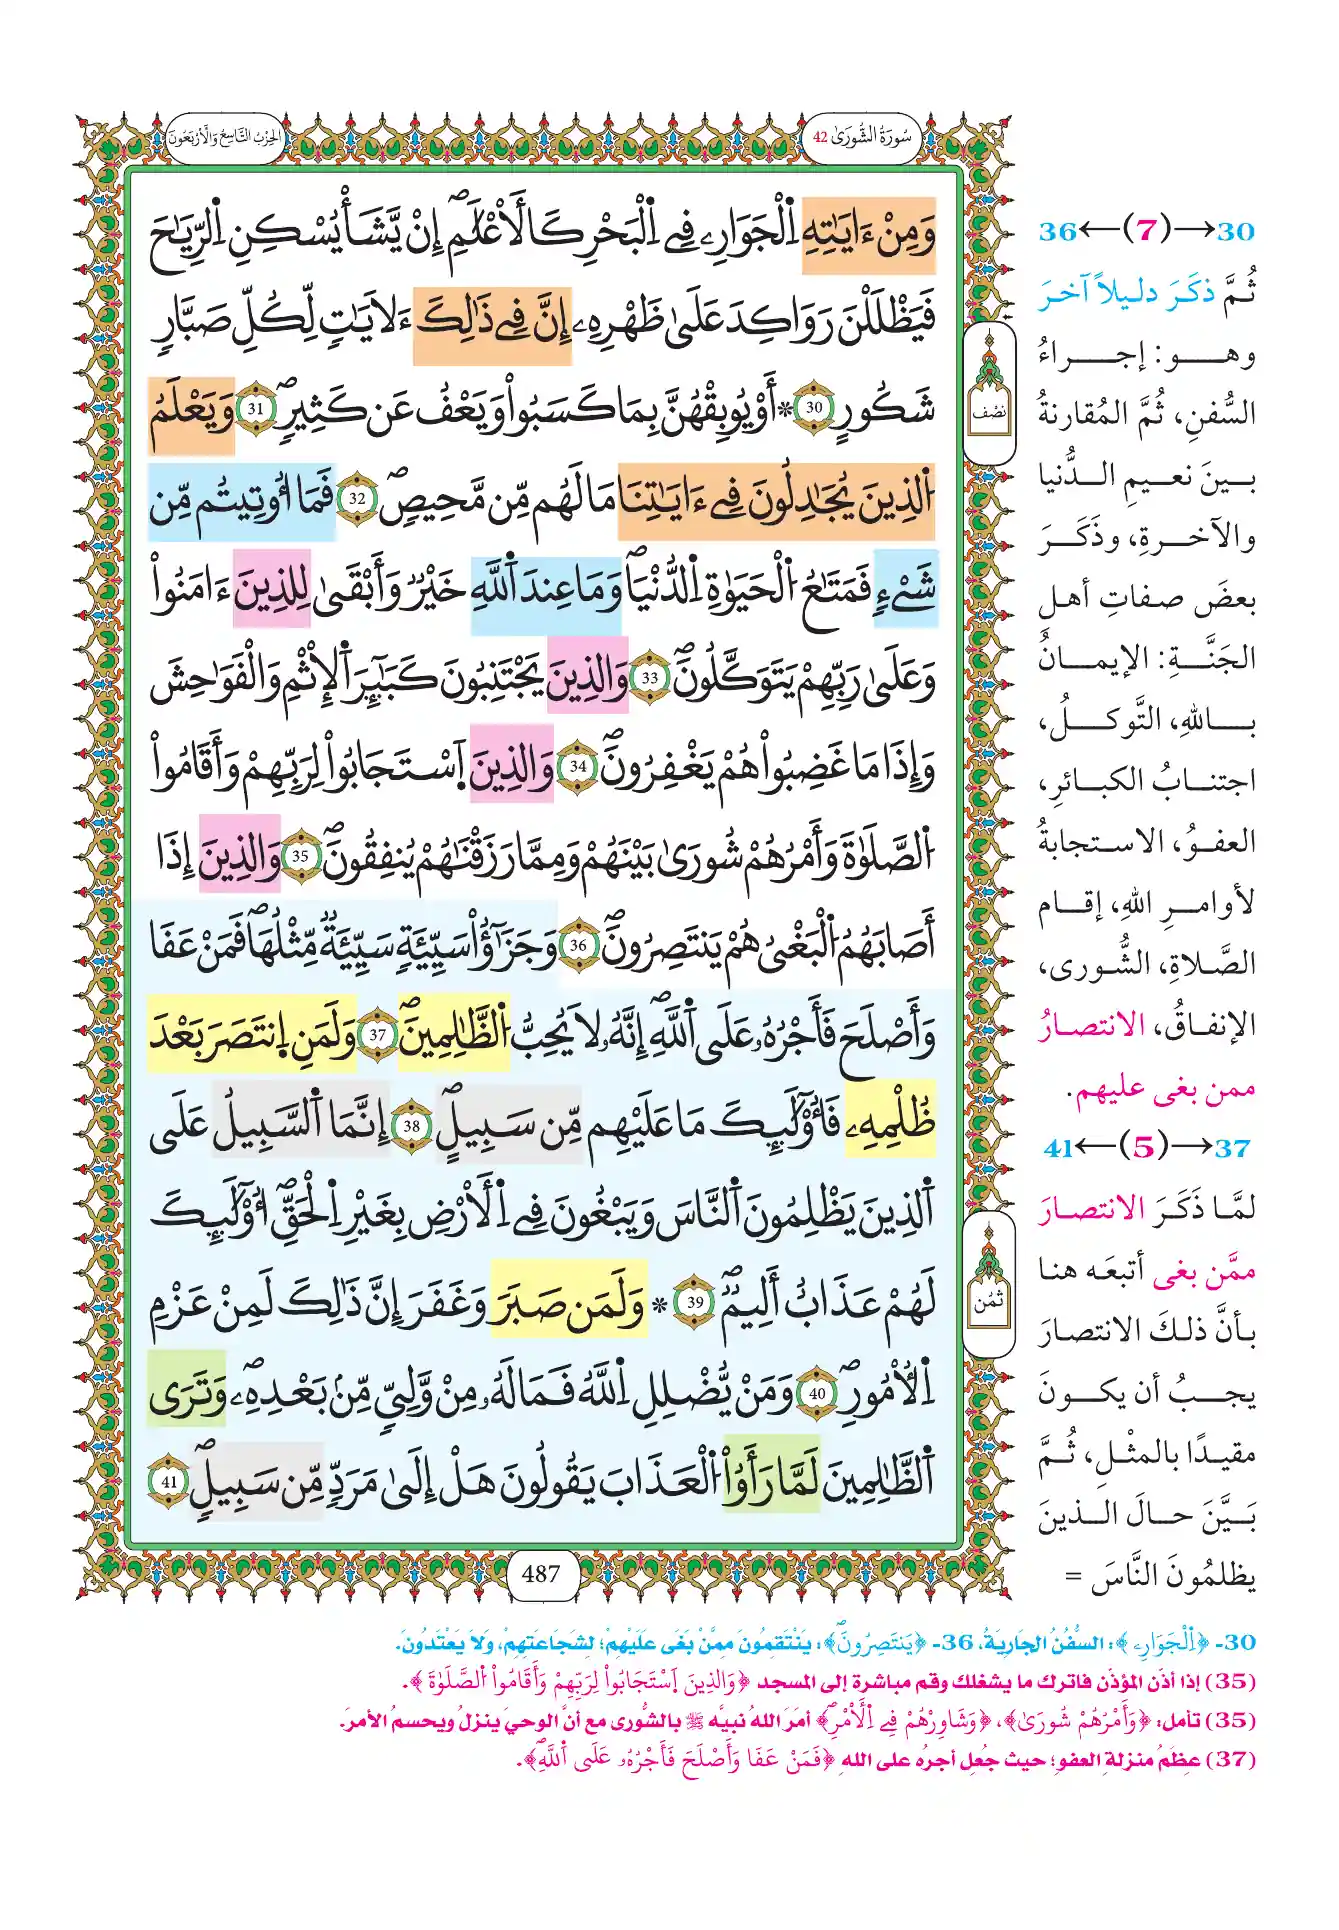 سُورَةُ الشُّورَىٰ 42
الحِزْبُ التَّاسِعُ وَالأَرْبَعُونَ
وَمِنْ ءَايَٰتِهِ اِ۬لْجَوَارِۦ فِے اِ۬لْبَحْرِ كَالَاعْلَٰمِۖ إِنْ يَّشَأْ يُسْكِنِ اِ۬لرِّيَٰحَ
فَيَظْلَلْنَ رَوَاكِدَ عَلَىٰ ظَهْرِهِۦٓ إِنَّ فِے ذَٰلِكَ ءَلَايَٰتٖ لِّكُلِّ صَبَّارٖ
شَكُورٍ 30 * اَوْ يُوبِقْهُنَّ بِمَا كَسَبُواْ وَيَعْفُ عَن كَثِيرٖۖ 31 وَيَعْلَمُ
اُ۬لذِينَ يُجَٰدِلُونَ فِےٓ ءَايَٰتِنَا مَا لَهُم مِّن مَّحِيصٖۖ 32 فَمَآ أُوتِيتُم مِّن
شَےْءٖ فَمَتَٰعُ اُ۬لْحَيَوٰةِ اِ۬لدُّنْيَاۖ وَمَا عِندَ اَ۬للَّهِ خَيْرٞ وَأَبْقَىٰ لِلذِينَ ءَامَنُواْ
وَعَلَىٰ رَبِّهِمْ يَتَوَكَّلُونَۖ 33 وَالذِينَ يَجْتَنِبُونَ كَبَٰٓئِرَ اَ۬لْإِثْمِ وَالْفَوَٰحِشَ
وَإِذَا مَا غَضِبُواْ هُمْ يَغْفِرُونَۖ 34 وَالذِينَ اَ۪سْتَجَابُواْ لِرَبِّهِمْ وَأَقَامُواْ
اُ۬لصَّلَوٰةَ وَأَمْرُهُمْ شُورَىٰ بَيْنَهُمْ وَمِمَّا رَزَقْنَٰهُمْ يُنفِقُونَۖ 35 وَالذِينَ إِذَآ
أَصَابَهُمُ اُ۬لْبَغْىُ هُمْ يَنتَصِرُونَۖ 36 وَجَزَٰٓؤُاْ سَيِّئَةٖ سَيِّئَةٞ مِّثْلُهَاۖ فَمَنْ عَفَا
وَأَصْلَحَ فَأَجْرُهُۥ عَلَى اَ۬للَّهِۖ إِنَّهُۥ لَا يُحِبُّ اُ۬لظَّٰلِمِينَۖ 37 وَلَمَنِ اِ۪نتَصَرَ بَعْدَ
ظُلْمِهِۦ فَأُوْلَٰٓئِكَ مَا عَلَيْهِم مِّن سَبِيلٍۖ 38 إِنَّمَا اَ۬لسَّبِيلُ عَلَى
اَ۬لذِينَ يَظْلِمُونَ اَ۬لنَّاسَ وَيَبْغُونَ فِے اِ۬لْأَرْضِ بِغَيْرِ اِ۬لْحَقِّۖ أُوْلَٰٓئِكَ
لَهُمْ عَذَابٌ أَلِيمٞۖ 39 * وَلَمَن صَبَرَ وَغَفَرَ إِنَّ ذَٰلِكَ لَمِنْ عَزْمِ
اِ۬لُامُورِۖ 40 وَمَنْ يُّضْلِلِ اِ۬للَّهُ فَمَا لَهُۥ مِنْ وَّلِيّٖ مِّنۢ بَعْدِهِۦۖ وَتَرَى
اَ۬لظَّٰلِمِينَ لَمَّا رَأَوُاْ اُ۬لْعَذَابَ يَقُولُونَ هَلْ إِلَىٰ مَرَدّٖ مِّن سَبِيلٖۖ 41
نصف
ثمن
487
30→(7)←36
ثُمَّ ذكَرَ دليلاً آخرَ
وهو: إجراءُ
السُّفنِ، ثُمَّ المُقارنةُ
بينَ نعيمِ الدُّنيا
والآخرةِ، وذَكَرَ
بعضَ صفاتِ أهل
الجَنَّةِ: الإيمانُ
باللهِ، التَّوكلُ،
اجتنابُ الكبائرِ،
العفوُ، الاستجابةُ
لأوامرِ اللهِ، إقام
الصَّلاةِ، الشُّورى،
الإنفاقُ، الانتصارُ
ممن بغى عليهم.
37→(5)←41
لمَّا ذَكَرَ الانتصارَ
ممَّن بغى أتبعَه هنا
بأنَّ ذلكَ الانتصارَ
يجبُ أن يكونَ
مقيدًا بالمثْلِ، ثُمَّ
بَيَّنَ حالَ الذينَ
يظلمُونَ النَّاسَ =
30- ﴿اِ۬لْجَوَارِۦ﴾: السُّفُنُ الجَارِيَةُ، 36- ﴿يَنتَصِرُونَۖ﴾: يَنْتَقِمُونَ مِمَّنْ بَغَى عَلَيْهِمْ؛ لِشَجَاعَتِهِمْ، وَلَا يَعْتَدُونَ.
(35) إذا أذن المؤذن فاترك ما يشغلك وقم مباشرة إلى المسجد ﴿وَالذِينَ اَ۪سْتَجَابُواْ لِرَبِّهِمْ وَأَقَامُواْ اُ۬لصَّلَوٰةَ﴾.
(35) تأمل: ﴿وَأَمْرُهُمْ شُورَىٰ﴾، ﴿وَشَاوِرْهُمْ فِے اِ۬لَامْرِۖ﴾ أمَرَ اللهُ نبيَّه ﷺ بالشُّورى مع أنَّ الوحيَ ينزلُ ويحسمُ الأمرَ.
(37) عِظَمُ منزلةِ العفوِ؛ حيث جُعِل أجرُه على الله ﴿فَمَنْ عَفَا وَأَصْلَحَ فَأَجْرُهُۥ عَلَى اَ۬للَّهِۖ﴾.